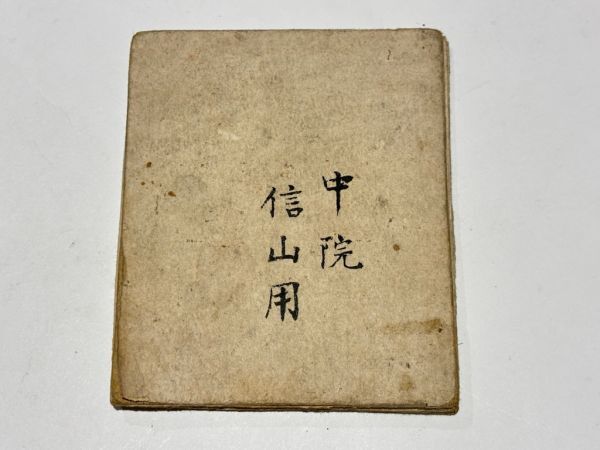 中院
信山用